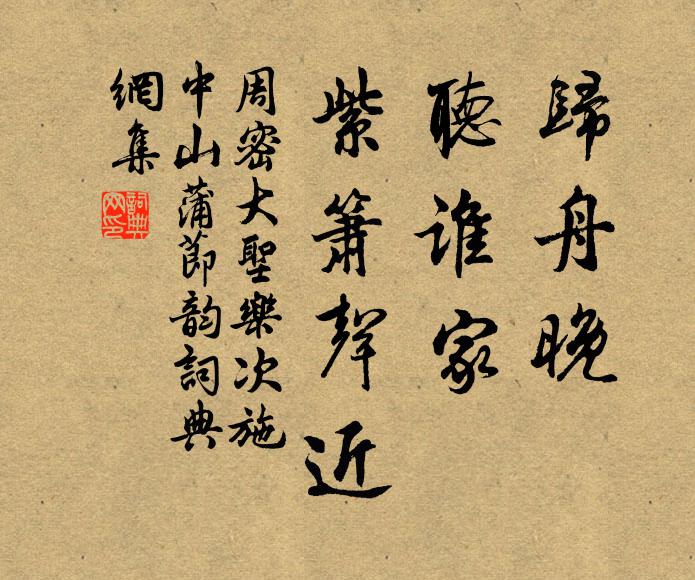 歸舟晚
聽誰家
紫簫聲近
周密大聖樂次施
中山蒲節韵詞典
網集
詞典網印